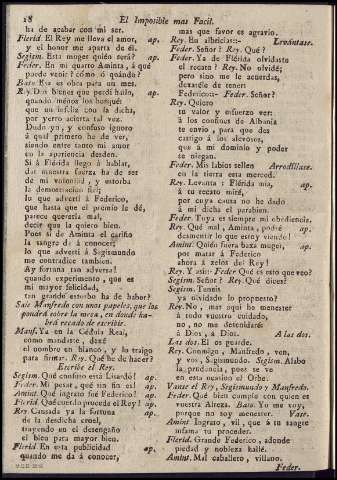 18 El Imposible mas Facil.
ha de acabar con mi ser.
Flerid. El Rey me lleva el amor, ap.
y el honor me aparta de él.
Segism. Esta muger quién será? ap.
Feder. En mi quarto Aminta, á qué
puede venir? cómo ó quándo?
Bato. Esa es obra para un mes.
Rey. Dos bienes que perdí hallo, ap.
quando menos los busqué:
que un infeliz con la dicha,
por yerro acierta tal vez.
Dudo yo, y confuso ignoro
á qual primero he de ver,
siendo entre tanto mi amor
en la apariencia desden.
Si á Flérida llego á hablar,
dar muestra fuerza ha de ser
de mi voluntad, y estorba
la demostracion fiel;
lo que advertí á Federico,
que hasta que el premio le dé,
parece quererla mal,
decir que la quiero bien.
Pues si de Aminta el cariño
la sangre dá á conocer,
lo que advertí á Segismundo
me contradice tambien.
Ay fortuna tan adversa!
quando experimento, que es
mi mayor felicidad,
tan grande estorbo ha de haber?
Sale Manfredo con unos papeles, que los
pondrá sobre la mesa, en donde ha-
brá recado de escribir.
Manf. Ya en la Cédula Real,
como mandaste, dexé
el nombre en blanco, y la traigo
para firmar. Rey. Qué he de hacer?
Escribe el Rey.
Segism. Qué confuso está Lisardo! ap.
Feder. Mi pesar, qué sin fin es! ap.
Amint. Qué ingrato fué Federico! ap.
Flerid. Qué cuerdo procede el Rey! ap.
Rey. Cansada ya la fortuna ap.
de la desdicha cruel,
trayendo en el desengaño
el bien para mayor bien.
Flerid. En esta publicidad ap.
quando me dá á conocer,
mas que favor es agravio.
Rey. En albricias:- Levántase.
Feder. Señor? Rey. Qué?
Feder. Ya de Flérida olvidaste
el recato? Rey. No olvidé;
pero sino me acuerdas,
dexaréle de tener:
Federico:- Feder. Señor?
Rey. Quiero
tu valor y esfuerzo ver:
á los confines de Albania
te envio, para que des
castigo á los alevosos,
que á mi dominio y poder
te niegan.
Feder. Mis labios sellen Arrodíllase.
en la tierra esta merced.
Rey. Levanta: Flérida mia, ap.
á tu recato miré,
por cuya causa no he dado
á mi dicha el parabien.
Feder. Tuya es siempre mi obediencia.
Rey. Qué mal, Aminta, podré ap.
desmentir lo que estoy viendo!
Amint. Quién fuera baxa muger, ap.
por matar á Federico
ahora á zelos del Rey!
Rey. Y asi:- Feder. Qué es esto que veo?
Segism. Señor? Rey. Qué dices?
Segism. Tan
ya olvidado lo propuesto?
Rey. No, mas aquí no merecer
á todo vuestro cuidado,
no, no me detendreis
á Dios, á Dios. A las dos.
Las dos. El os guarde.
Rey. Conmigo, Manfredo, ven,
y vos, Segismundo. Segism. Alabo
la prudencia, pues se ve
en esta ocasion el Orbe.
Vanse el Rey, Segismundo y Manfredo.
Feder. Qué bien cumple con quien es
vuestra Alteza. Bato. Yo me voy,
porque no soy menester. Vase.
Amint. Ingrato, vil, que á tu sangre
infama tu proceder.
Flerid. Grande Federico, adonde
piedad y nobleza hallé.
Amint. Mal caballero, villano.
Feder.